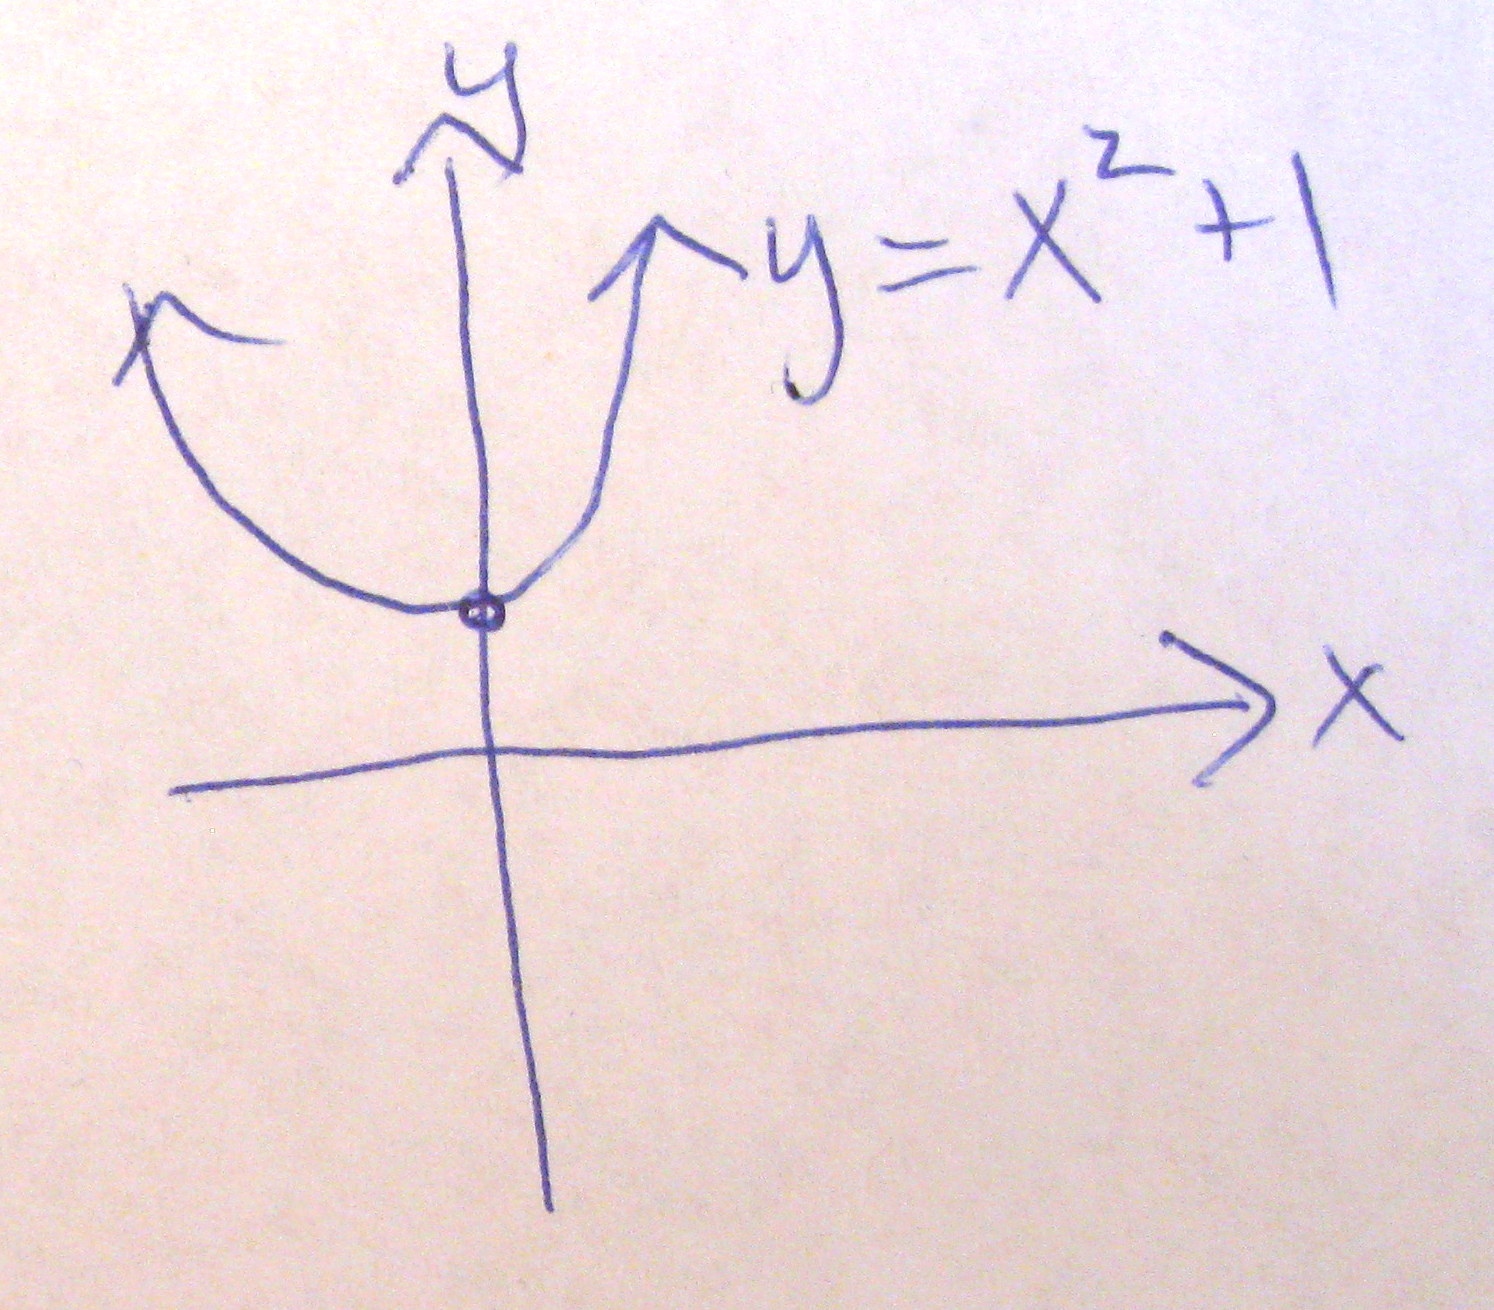 y
y = x² + 1
x